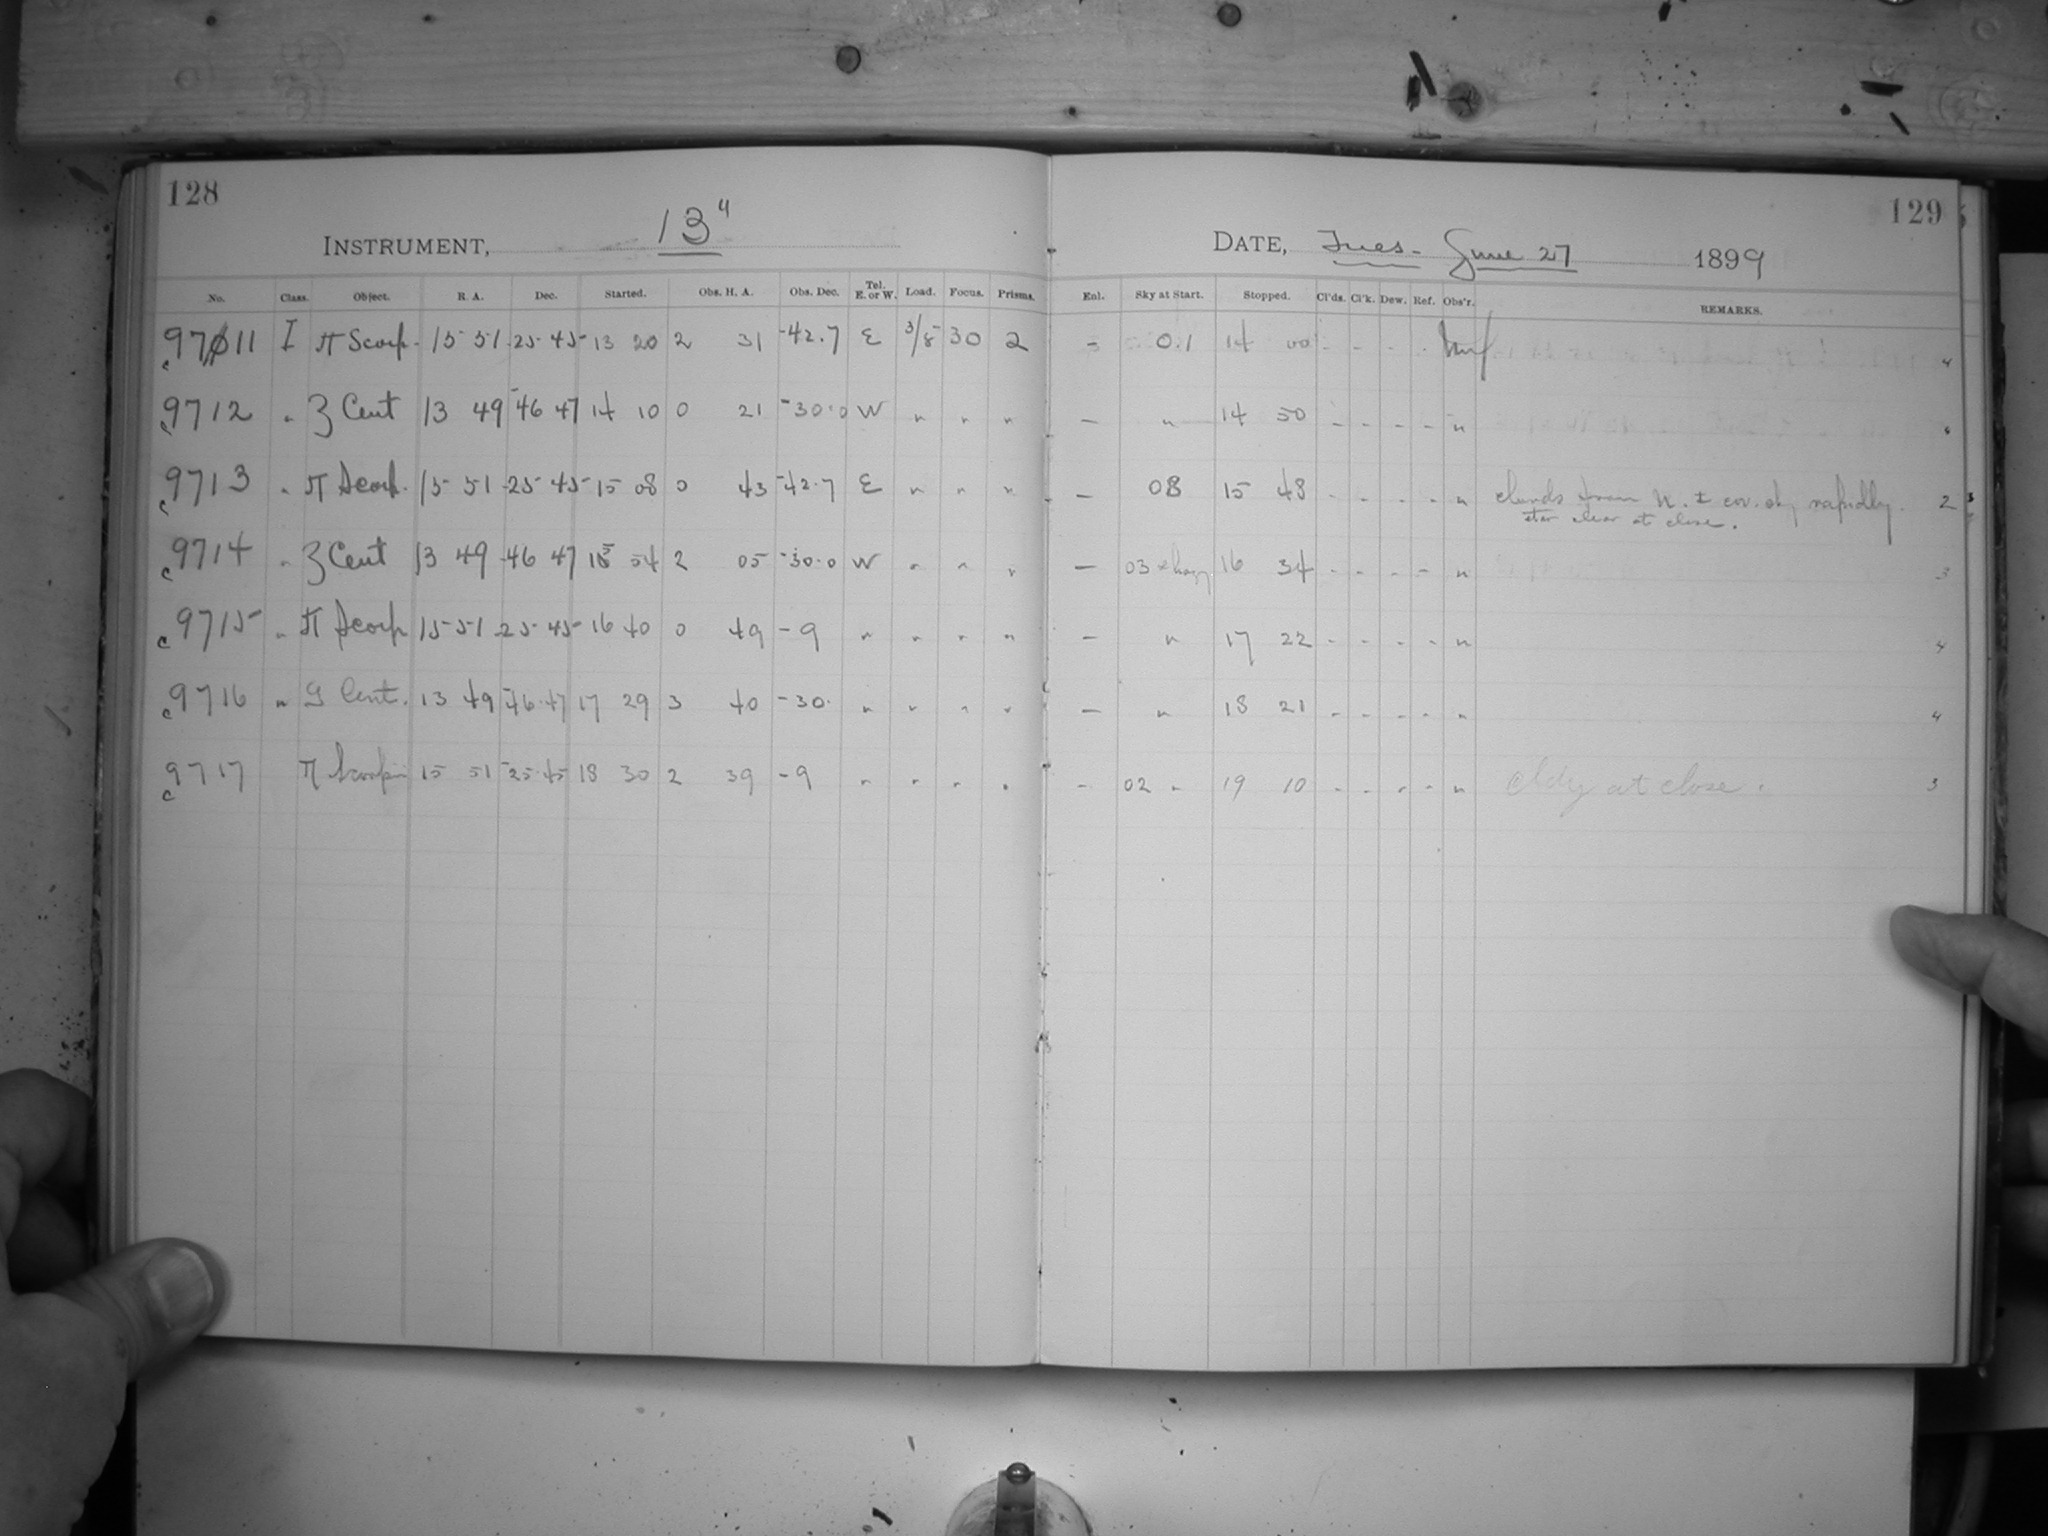 128
INSTRUMENT, 13"
No. Class. Object. R. A. Dec. Started. Obs. H. A. Obs. Dec. Tel. E. or W. Load. Focus. Prisms.
c9711 I π Scorp. 15 51 -25 45 13 20 2 31 -42.7 E 3/8 30 2
c9712 " ζ Cent 13 49 -46 47 14 10 0 21 -30.0 W " " "
c9713 " π Scorp. 15 51 -25 45 15 08 0 43 -42.7 E " " "
c9714 " ζ Cent 13 49 -46 47 15 54 2 05 -30.0 W " " "
c9715 " π Scorp 15 51 -25 45 16 40 0 49 -9 " " " "
c9716 " ζ Cent. 13 49 -46 47 17 29 3 40 -30. " " " "
c9717 π Scorpii 15 51 -25 45 18 30 2 39 -9 " " " "
129
DATE, Tues- June 27 1899
Enl. Sky at Start. Stopped. Cl'ds. Cl'k. Dew. Ref. Obs'r. REMARKS.
- 0.1 14 00 - - - - 4
- " 14 50 - - - - "
- 08 15 48 - - - - " clouds from N. & cov. sky rapidly. 2
star clear at close.
- 03 & hazy 16 34 - - - - " 3
- " 17 22 - - - - " 4
- " 18 21 - - - - " 4
- 02 " 19 10 - - - - " cldy at close. 3